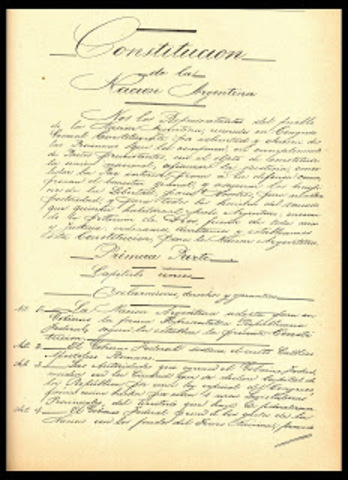 Constitucion
de la
Nacion Argentina
Nos los Representantes del pueblo
de la Nacion Argentina, reunidos en Congreso
General Constituyente por voluntad y eleccion de
las Provincias que la componen, en cumplimiento
de Pactos preexistentes, con el objeto de constituir
la union nacional, afianzar la justicia, consolidar
la Paz interior, proveer a la defensa comun,
promover el bienestar general, y asegurar los beneficios
de la libertad, para nosotros, para nuestra
posteridad, y para todos los hombres del mundo
que quieran habitar el suelo argentino; invocando
la proteccion de Dios, fuente de toda razon
y justicia; ordenamos, decretamos y establecemos
esta Constitucion, para la Nacion Argentina.
Primera Parte
Capitulo unico
Declaraciones, derechos y garantias
Art. 1 La Nacion Argentina adopta para su
Gobierno la forma Representativa Republicana
Federal, segun la establece la presente Constitucion
Art. 2 El Gobierno Federal sostiene el culto Catolico
Apostolico Romano.
Art. 3 Las Autoridades que ejercen el Gobierno Federal,
residen en la Ciudad que se declare Capital de
la Republica por una ley especial del Congreso,
previa cesion hecha por una o mas Legislaturas
Provinciales, del territorio que haya de federalizarse
Art. 4 El Gobierno Federal provee a los gastos de la
Nacion con los fondos del Tesoro Nacional, formado